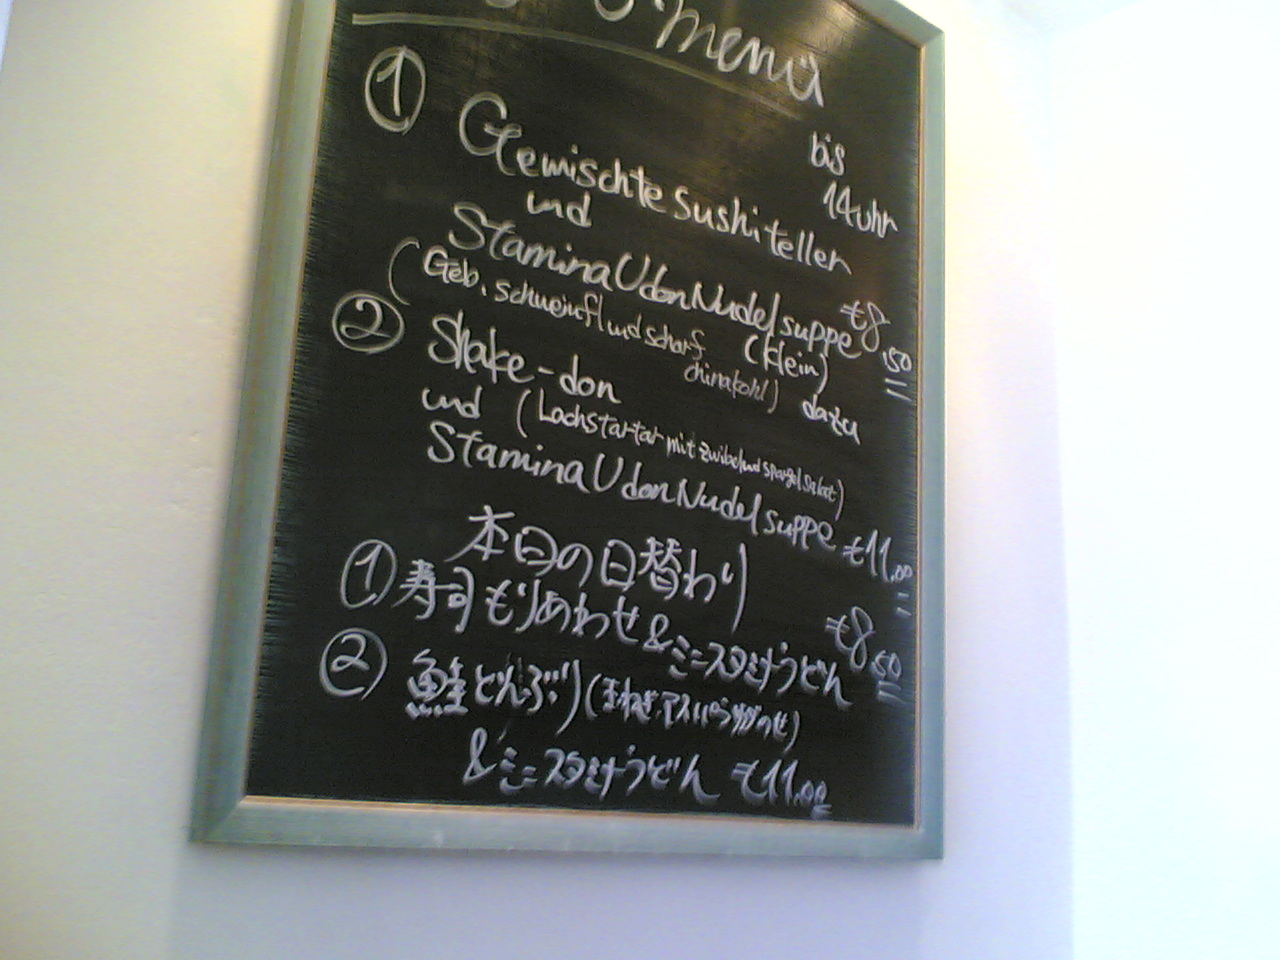 menü
bis
14 uhr
① Gemischte Sushi teller
und
Stamina Udon Nudel suppe €8.50
(Geb. schweinefl und scharf (klein)
chinakohl) dazu
② Shake-don
und (Lachstartar mit zwibel und spargel salat)
Stamina Udon Nudel suppe €11.00
本日の日替わり
① 寿司もりあわせ & ミニスタミナうどん €8.50
② 鮭どんぶり(玉ねぎ、アスパラ
& ミニスタミナうどん €11.00